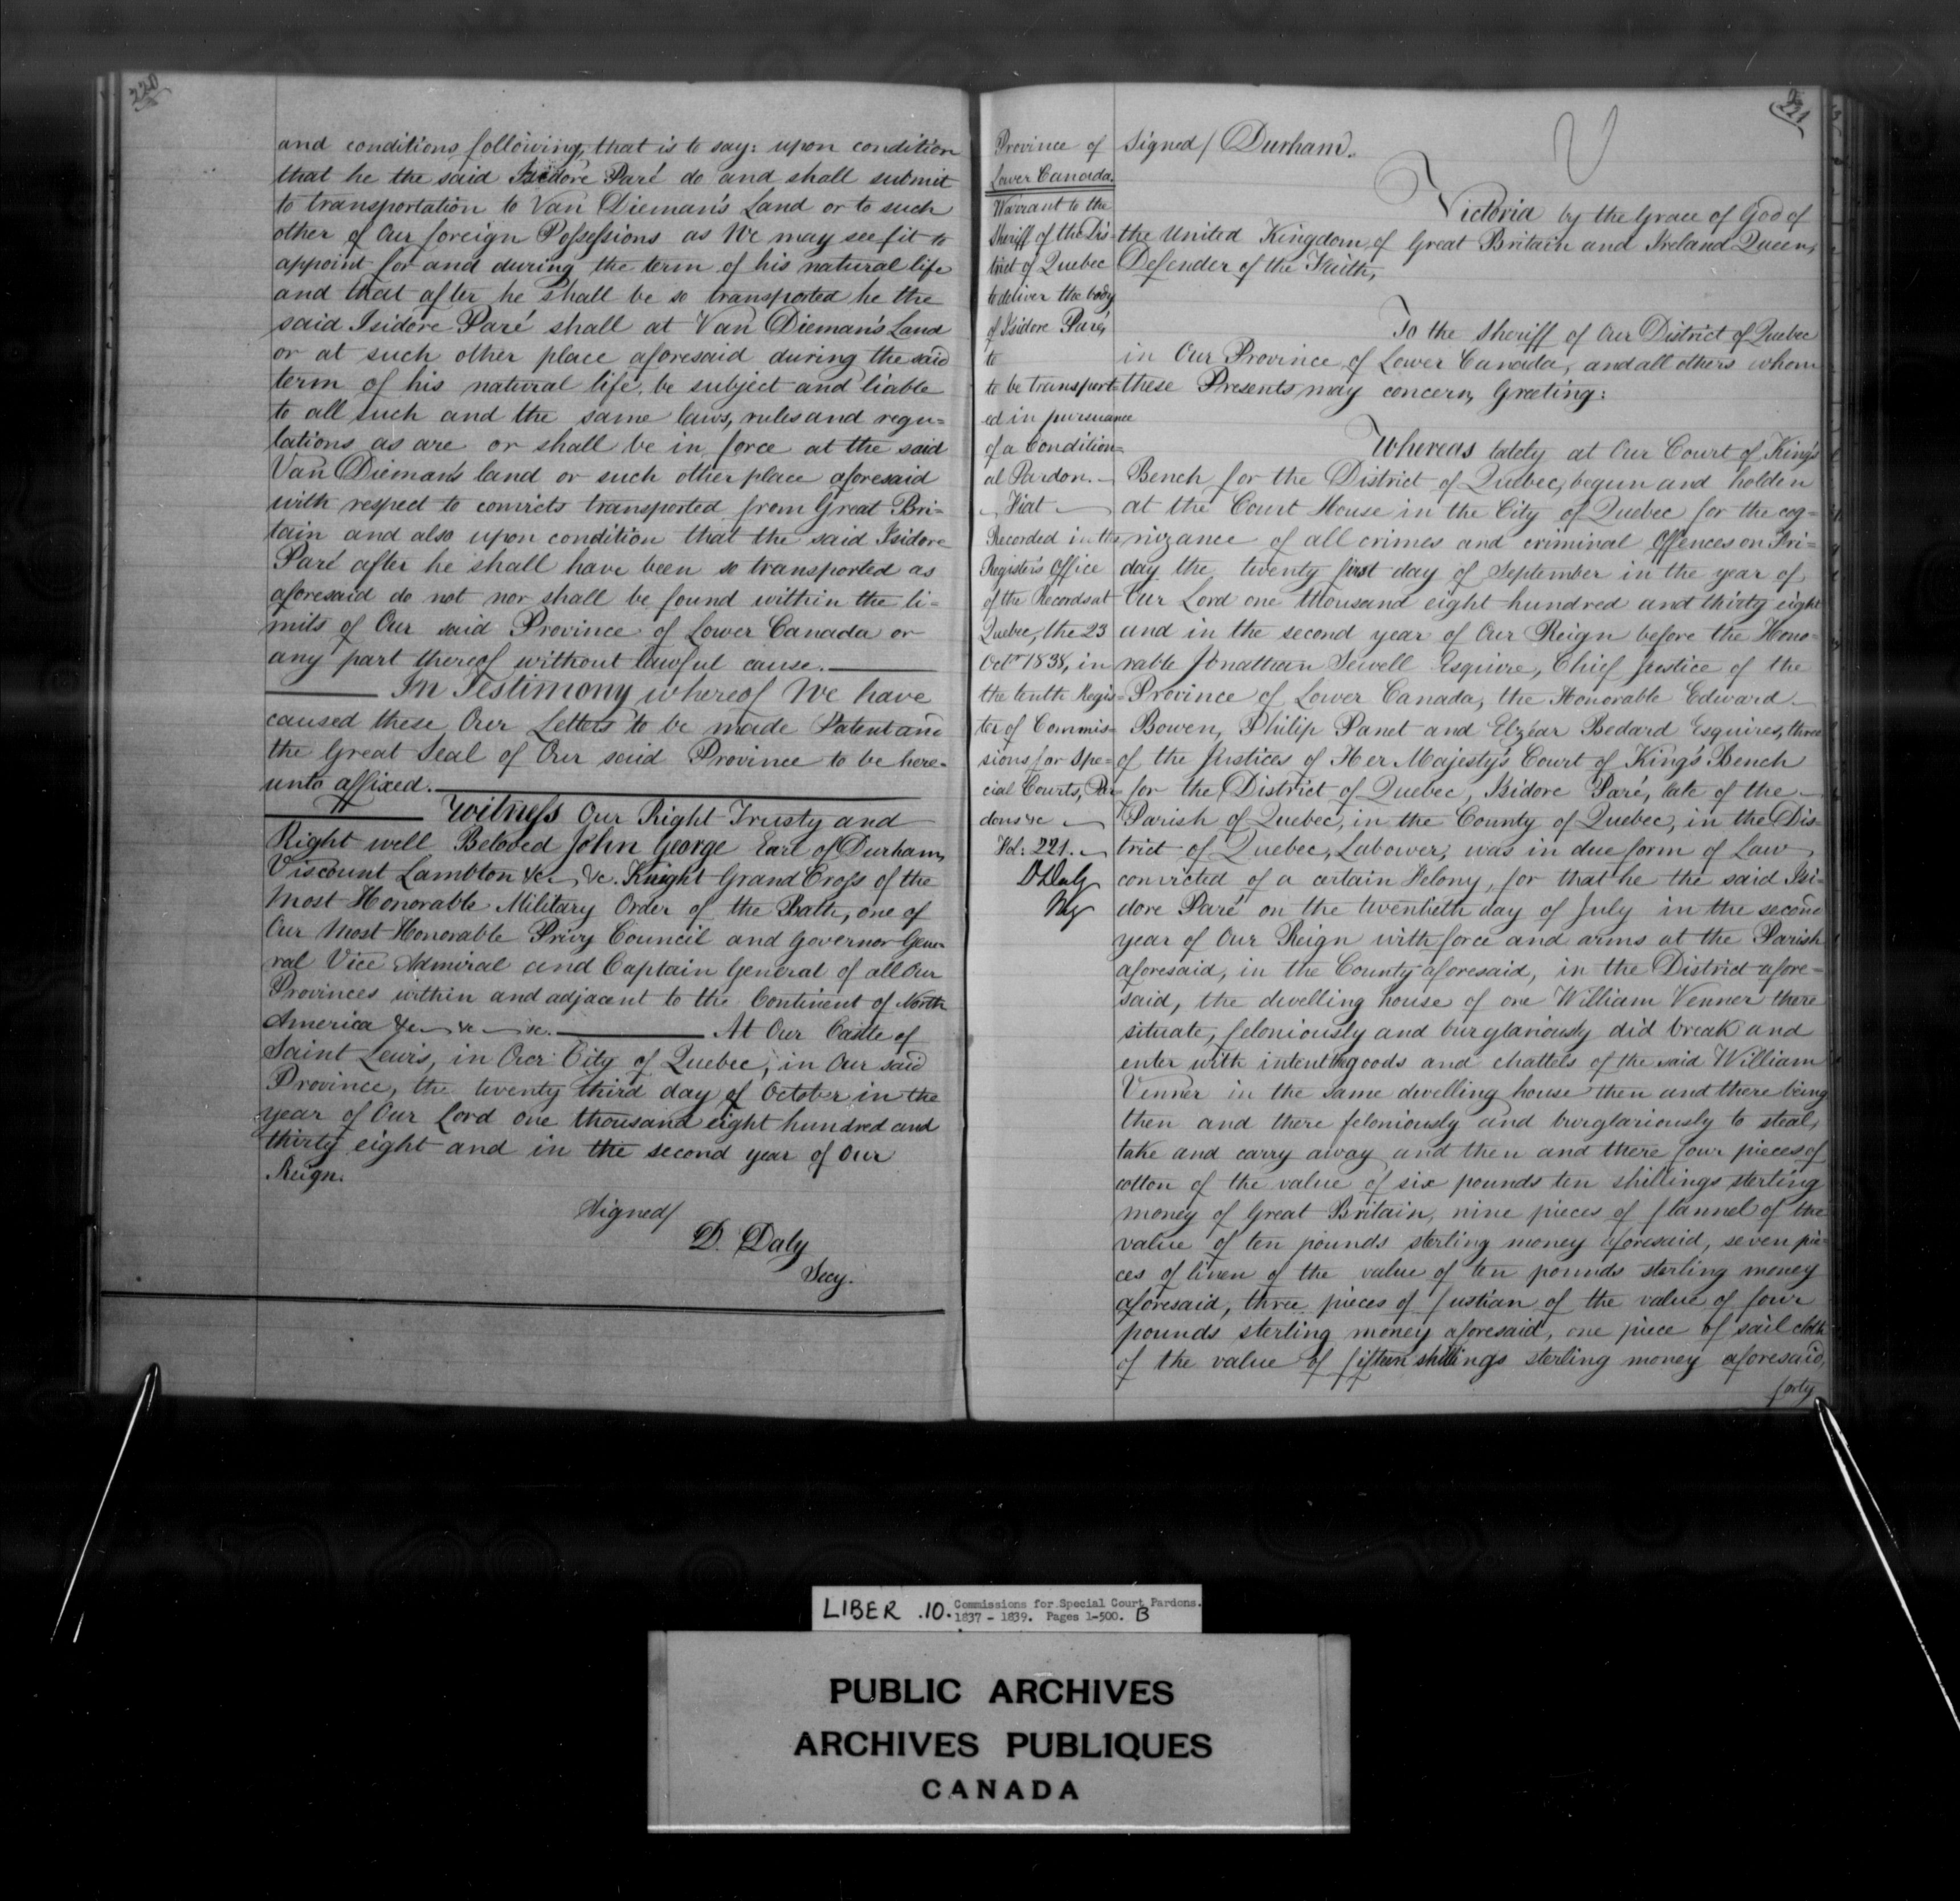 220
and conditions following, that is to say: upon condition
that he the said Isidore Paré do and shall submit
to transportation to Van Dieman's Land or to such
other of Our foreign Possessions as We may see fit to
appoint for and during the term of his natural life
and that after he shall be so transported he the
said Isidore Paré shall at Van Dieman's Land
or at such other place aforesaid during the said
term of his natural life, be subject and liable
to all such and the same laws, rules and regu=
lations as are or shall be in force at the said
Van Dieman's land or such other place aforesaid
with respect to convicts transported from Great Bri=
tain and also upon condition that the said Isidore
Paré after he shall have been so transported as
aforesaid do not nor shall be found within the li=
mits of Our said Province of Lower Canada or
any part thereof without lawful cause.
In Testimony whereof We have
caused these Our Letters to be made Patent and
the Great Seal of Our said Province to be here=
unto affixed.
Witness Our Right Trusty and
Right well Beloved John George Earl of Durham,
Viscount Lambton &c. &c. Knight Grand Cross of the
Most Honorable Military Order of the Bath, one of
Our Most Honorable Privy Council and Governor Gene=
ral Vice Admiral and Captain General of all Our
Provinces within and adjacent to the Continent of North
America &c &c &c. At Our Castle of
Saint Lewis, in Our City of Quebec, in Our said
Province, the twenty third day of October in the
year of Our Lord one thousand eight hundred and
thirty eight and in the second year of Our
Reign.
Signed/
D. Daly
Secy.
221
Province of
Lower Canada.
Warrant to the
Sheriff of the Dis=
trict of Quebec
to deliver the body
of Isidore Paré,
to
to be transport=
ed in pursuance
of a Condition=
al Pardon.
Fiat
Recorded in the
Register's Office
of the Records at
Quebec, the 23
Octr 1838, in
the tenth Regis=
ter of Commis=
sions for Spe=
cial Courts, Par=
dons &c
Fol: 221.
D Daly
Reg
Signed/ Durham.
Victoria by the Grace of God of
the United Kingdom of Great Britain and Ireland Queen,
Defender of the Faith,
To the Sheriff of Our District of Quebec
in Our Province of Lower Canada, and all others whom
these Presents may concern, Greeting:
Whereas lately at Our Court of King's
Bench for the District of Quebec, begun and holden
at the Court House in the City of Quebec for the cog=
nizance of all crimes and criminal Offences on Fri=
day the twenty first day of September in the year of
Our Lord one thousand eight hundred and thirty eight
and in the second year of Our Reign before the Hono=
rable Jonathan Sewell Esquire, Chief Justice of the
Province of Lower Canada, the Honorable Edward
Bowen, Philip Panet and Elzéar Bedard Esquires, three
of the Justices of Her Majesty's Court of King's Bench
for the District of Quebec, Isidore Paré, late of the
Parish of Quebec, in the County of Quebec, in the Dis=
trict of Quebec, Labower, was in due form of Law
convicted of a certain Felony, for that he the said Isi=
dore Paré on the twentieth day of July in the second
year of Our Reign with force and arms at the Parish
aforesaid, in the County aforesaid, in the District afore=
said, the dwelling house of one William Venner there
situate, feloniously and burglariously did break and
enter with intent the goods and chattels of the said William
Venner in the same dwelling house then and there being
then and there feloniously and burglariously to steal,
take and carry away and then and there four pieces of
cotton of the value of six pounds ten shillings sterling
money of Great Britain, nine pieces of flannel of the
value of ten pounds sterling money aforesaid, seven pie=
ces of linen of the value of ten pounds sterling money
aforesaid, three pieces of fustian of the value of four
pounds sterling money aforesaid, one piece of sail cloth
of the value of fifteen shillings sterling money aforesaid,
forty
LIBER .10. Commissions for Special Court Pardons.
1837 - 1839. Pages 1-500. B
PUBLIC ARCHIVES
ARCHIVES PUBLIQUES
CANADA